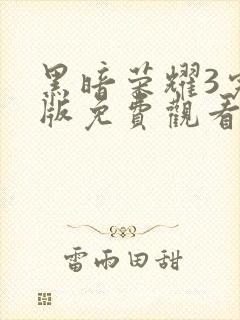 黑暗荣耀3
版免費觀看
雷雨田甜